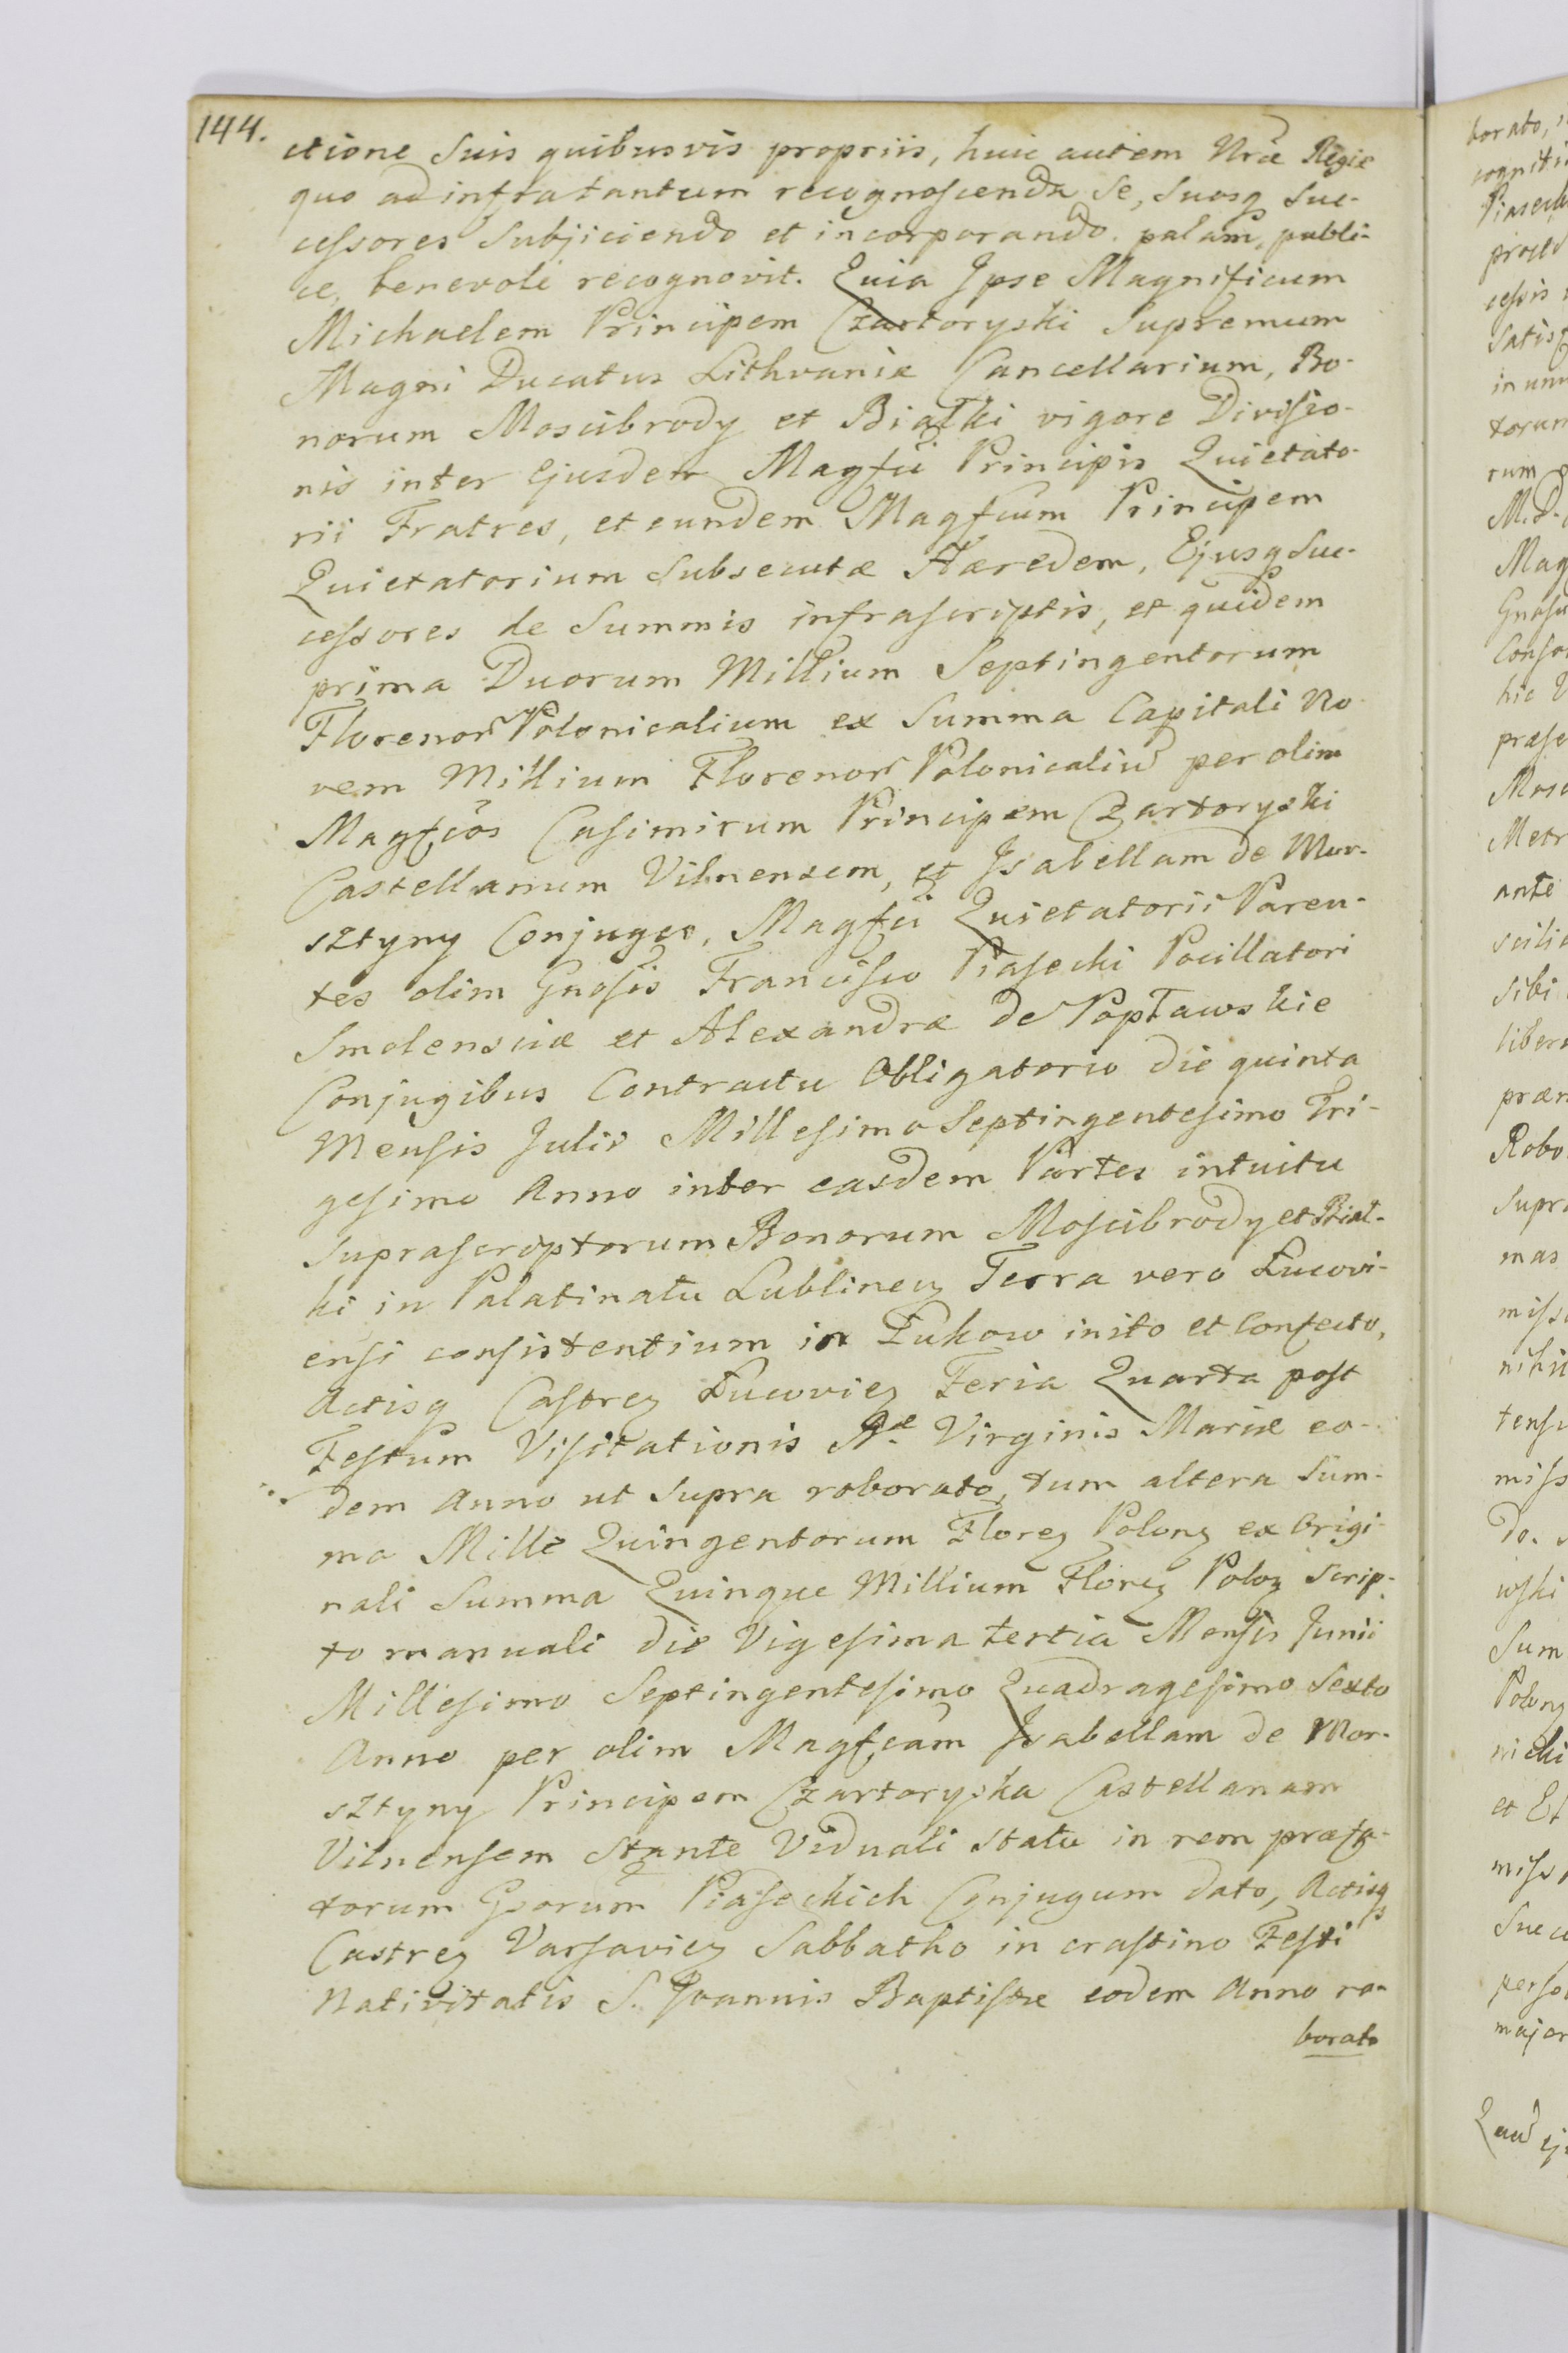 144.
ctione Suis quibusvis propriis, huic autem Nrae Regie
quo ad infratantum recognoscenda se, suosq Suc-
cessores Subjiciendo et incorporando. palam, publi-
ce, benevole recognovit. Quia Ipse Magnificum
Michaelem Principem Czartoryski Supremum
Magni Ducatus Lithvaniæ Cancellarium, Bo-
norum Moscibrody et Białki vigore Divisio-
nis inter Ejusdem Magfci Principis Quietato-
rii Fratres, et eundem Magfcum Principem
Quietatorium Subsecutæ Hæredem, Ejusq Suc-
cessores de Summis infrascriptis, et quidem
prima Duorum Millium Septingentorum
Florenor Polonicalium ex Summa Capitali No-
vem Millium Florenor Polonicaliu per olim
Magfcos Casimirum Principem Czartoryski
Castellanum Vilnensem, et Isabellam de Mor-
sztyny Conjuges, Magfci Quietatorii Paren-
tes olim Gnosis Francisco Piasecki Pocillatori
Smolensciæ et Alexandræ de Popławskie
Conjugibus Contractu Obligatorio die quinta
Mensis Julii Millesimo Septingentesimo Tri-
gesimo Anno inter easdem Partes intuitu
suprascriptorum Bonorum Moscibrody et Biał-
ki in Palatinatu Lublineñ Terra vero Łucovi-
ensi consistentium in Łukow inito et Confecto,
Actisq Castreñ Łucovieñ Feria Quarta post
Festum Visitationis Virginis Mariæ eo-
dem Anno ut Supra roborato, tum altera Sum-
ma Mille Quingentorum Floreñ Polonz ex Origi-
nali Summa Quinque Millium Floreñ Poloñ Scrip-
to manuali die Vigesima tertia Mensis Junii
Millesimo Septingentesimo Quadragesimo Sexto
Anno per olim Magfcam Isabellam de Mor-
sztyny Principem Czartoryska Castellanam
Vilnensem Stante Viduali Statu in rem præfa-
torum Gsorum Piaseckich Conjugum dato, Actisq
Castreñ Varsavieñ Sabbatho in crastino Festi
Nativitatis S. Joannis Baptistæ eodem Anno ro-
borato
borato,
cogniti
Piasecki
in
torum
rum
M.D.
Mag
Conso
hic
præsc
Mosc
Metr
ante
scilic
sibi
libera
præm
Robo
supra
mas
misso
nihil
tensi
miss
do.
wski
Sum
Polonz
nichi
et Et
Succ
perso
major